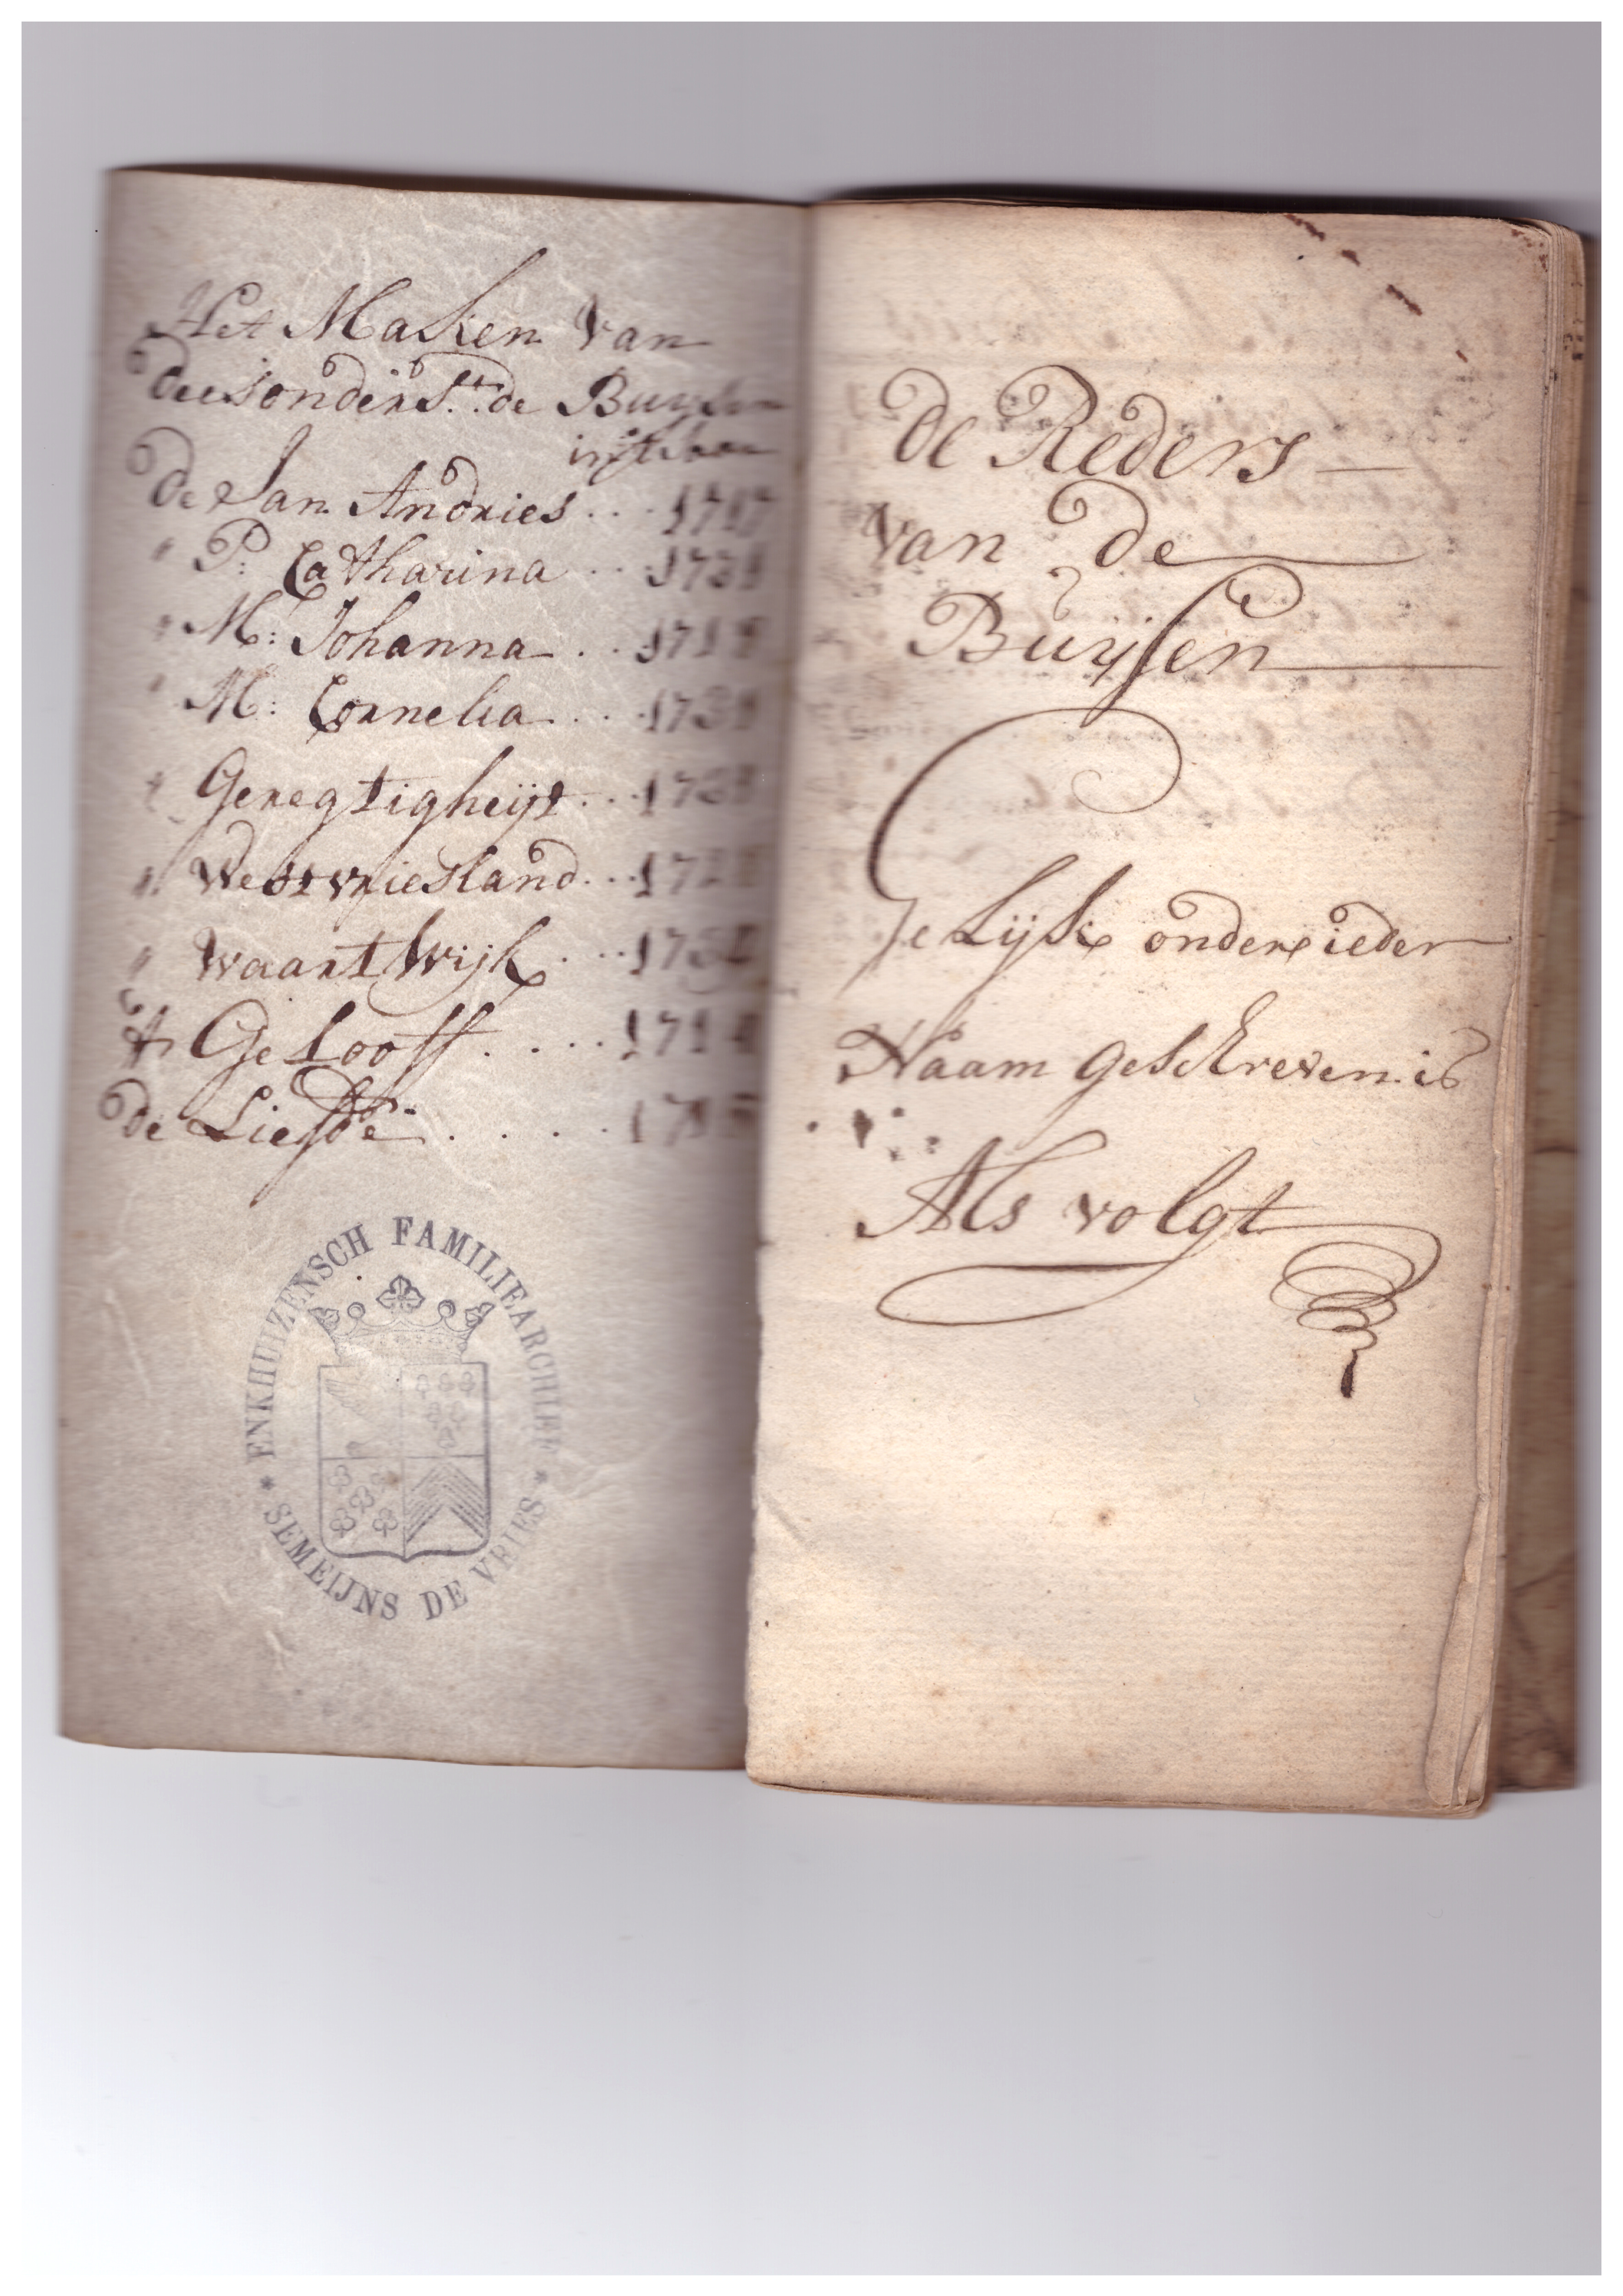 Het Maken van
deesonderst. de Buysen
in't iaar
De Jan Andries ... 1717
" P: Catharina ..
" M: Johanna ..
" M: Cornelia ...
" Geregtigheijt ...
" Westvriesland ...
" Waart Wijk ...
't Gelooff ....
de Liefde ....
ENKHUIZENSCH FAMILIEARCHIEF
* SEMEIJNS DE VRIES *
de Reders —
van de
Buijsen
Gelijk onder ieder
Naam geschreven is
Als volgt